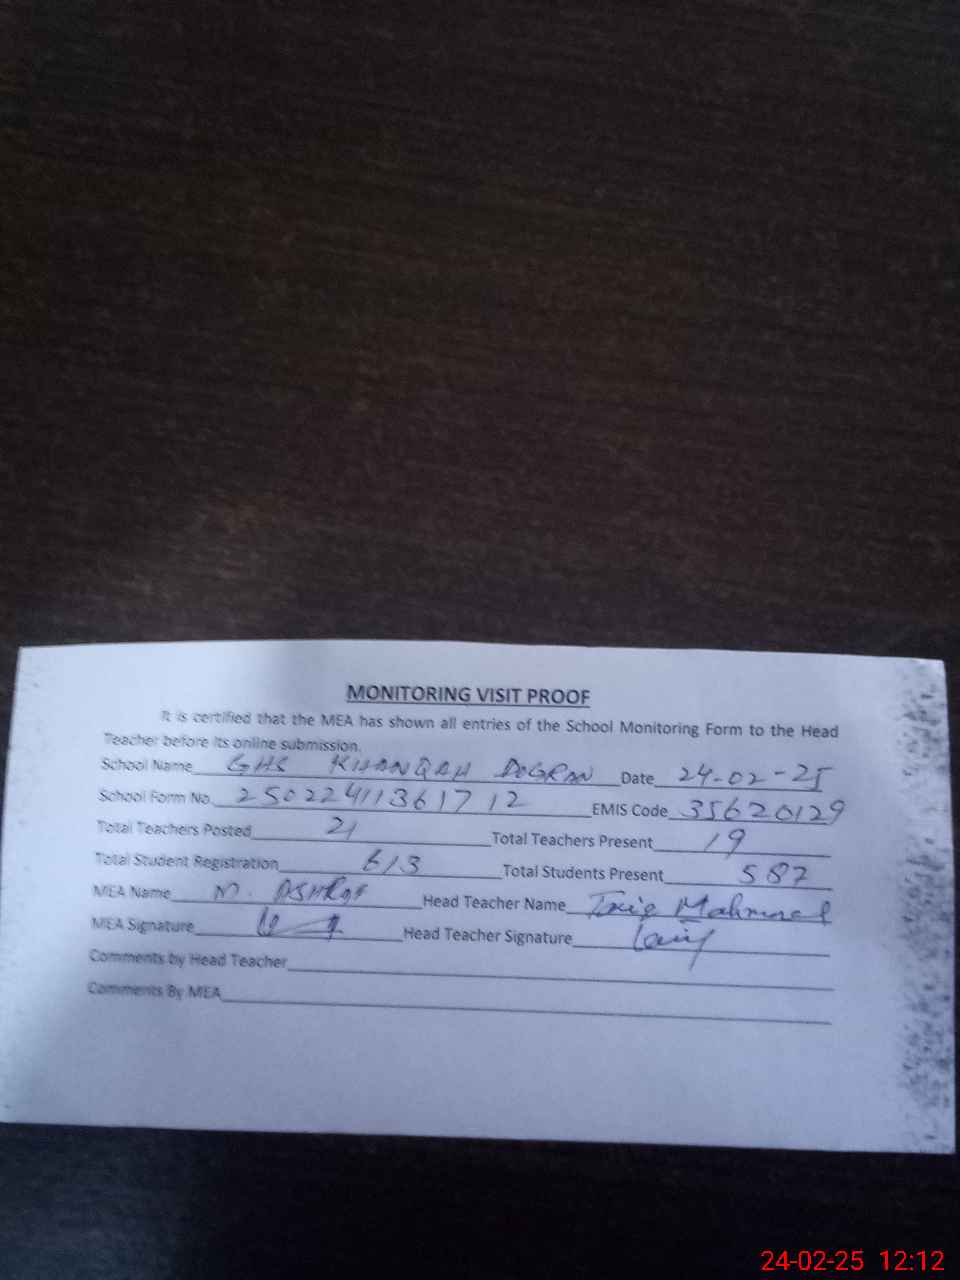 MONITORING VISIT PROOF
It is certified that the MEA has shown all entries of the School Monitoring Form to the Head
Teacher before its online submission.
School Name GHS KHANQAH DOGRAN Date 24-02-25
School Form No. 25022411361712 EMIS Code 35620129
Total Teachers Posted 21 Total Teachers Present 19
Total Student Registration 613 Total Students Present 587
MEA Name M. ASHRAF Head Teacher Name Tariq Mahmood
MEA Signature Head Teacher Signature
Comments by Head Teacher
Comments By MEA
24-02-25 12:12